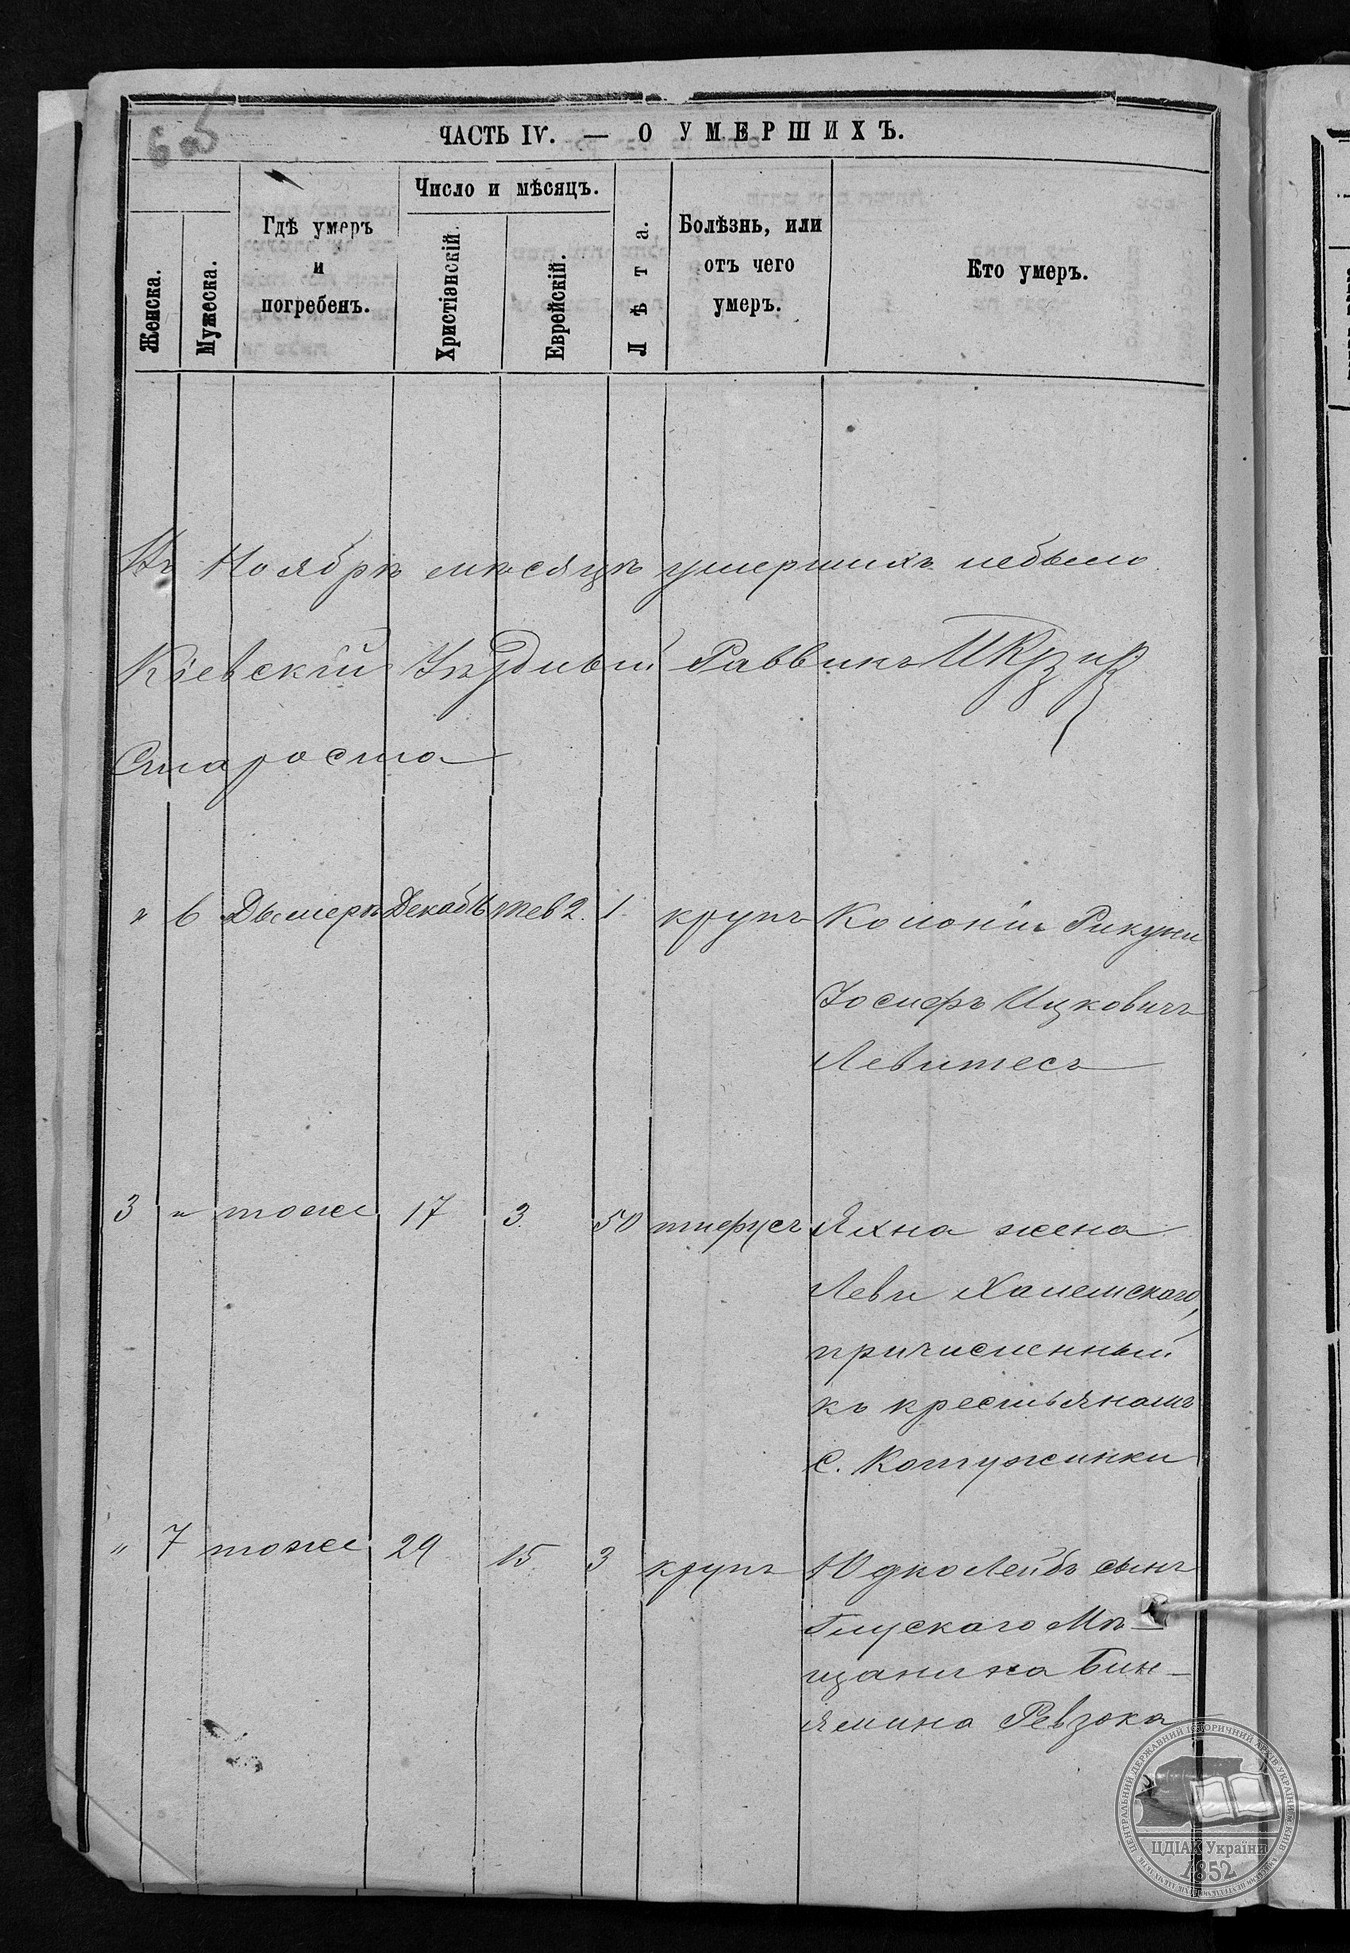 ЧАСТЬ IV. — О УМЕРШИХЪ.
Женска.
Мужеска.
Гдѣ умеръ
и
погребенъ.
Число и мѣсяцъ.
Христіанскій.
Еврейскій.
Лѣта.
Болѣзнь, или
отъ чего
умеръ.
Кто умеръ.
Въ Ноябрѣ мѣсяцѣ умершихъ небыло
Кіевскій Уѣздный Раввинъ
Староста
" 6 Дымеръ Декаб 16 тев 2. 1 крупъ Колоніи Рикуни
Іосифъ Ицковичъ
Левитесъ
3 " тоже 17 3. 50 тифусъ Яхна жена
Леви Халемскаго,
причисленный
къ крестьянамъ
С. Котужинки
" 7 тоже 29 15. 3 крупъ Юдко Лейбъ сынъ
Глускаго Мѣ-
щанина Бин-
ямина Ревзока
ЦЕНТРАЛЬНИЙ ДЕРЖАВНИЙ ІСТОРИЧНИЙ АРХІВ УКРАЇНИ М. КИЇВ
ЦДІАК України
1852